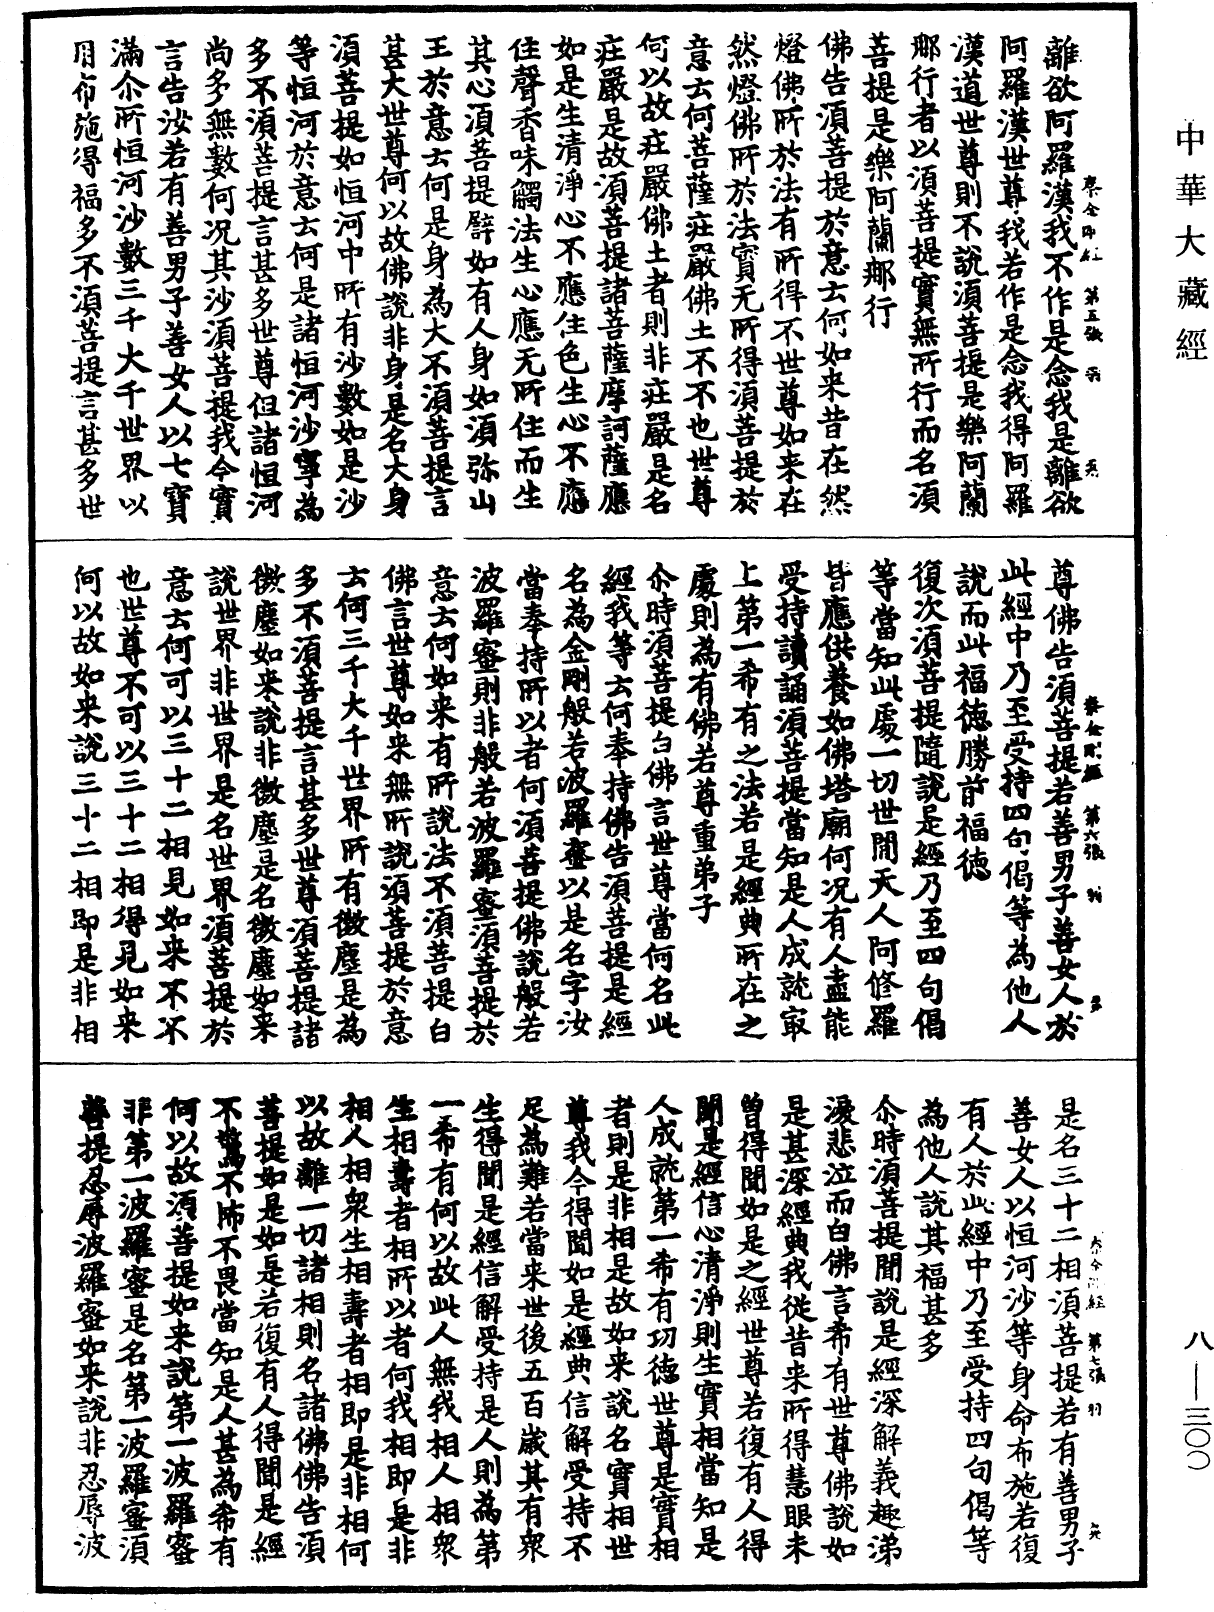 中華大藏經
離欲阿羅漢我不作是念我是離欲
阿羅漢世尊我若作是念我得阿羅
漢道世尊則不說須菩提是樂阿蘭
那行者以須菩提實無所行而名須
菩提是樂阿蘭那行
佛告須菩提於意云何如来昔在然
燈佛所於法有所得不世尊如来在
然燈佛所於法實无所得須菩提於
意云何菩薩莊嚴佛土不不也世尊
何以故莊嚴佛土者則非莊嚴是名
莊嚴是故須菩提諸菩薩摩訶薩應
如是生清淨心不應住色生心不應
住聲香味觸法生心應无所住而生
其心須菩提譬如有人身如須弥山
王於意云何是身為大不須菩提言
甚大世尊何以故佛說非身是名大身
須菩提如恒河中所有沙數如是沙
等恒河於意云何是諸恒河沙寧為
多不須菩提言甚多世尊但諸恒河
尚多無數何况其沙須菩提我今實
言告汝若有善男子善女人以七寶
滿尒所恒河沙數三千大千世界以
用布施得福多不須菩提言甚多世
第五張
尊佛告須菩提若善男子善女人於
此經中乃至受持四句偈等為他人
說而此福德勝前福德
復次須菩提隨說是經乃至四句偈
等當知此處一切世間天人阿修羅
皆應供養如佛塔廟何况有人盡能
受持讀誦須菩提當知是人成就㝡
上第一希有之法若是經典所在之
處則為有佛若尊重弟子
尒時須菩提白佛言世尊當何名此
經我等云何奉持佛告須菩提是經
名為金剛般若波羅蜜以是名字汝
當奉持所以者何須菩提佛說般若
波羅蜜則非般若波羅蜜須菩提於
意云何如来有所說法不須菩提白
佛言世尊如来無所說須菩提於意
云何三千大千世界所有微塵是為
多不須菩提言甚多世尊須菩提諸
微塵如来說非微塵是名微塵如来
說世界非世界是名世界須菩提於
意云何可以三十二相見如来不不
也世尊不可以三十二相得見如来
何以故如来說三十二相即是非相
第六張
是名三十二相須菩提若有善男子
善女人以恒河沙等身命布施若復
有人於此經中乃至受持四句偈等
為他人說其福甚多
尒時須菩提聞說是經深解義趣涕
淚悲泣而白佛言希有世尊佛說如
是甚深經典我從昔来所得慧眼未
曾得聞如是之經世尊若復有人得
聞是經信心清淨則生實相當知是
人成就第一希有功德世尊是實相
者則是非相是故如来說名實相世
尊我今得聞如是經典信解受持不
足為難若當来世後五百歲其有衆
生得聞是經信解受持是人則為第
一希有何以故此人無我相人相衆
生相壽者相所以者何我相即是非
相人相衆生相壽者相即是非相何
以故離一切諸相則名諸佛佛告須
菩提如是如是若復有人得聞是經
不驚不怖不畏當知是人甚為希有
何以故須菩提如来說第一波羅蜜
非第一波羅蜜是名第一波羅蜜須
菩提忍辱波羅蜜如来說非忍辱波
第七張
八—三〇〇